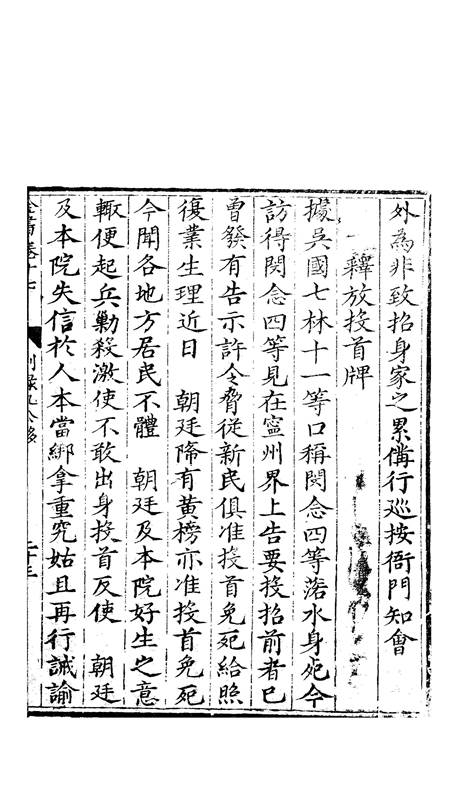 外為非致招身家之累備行巡按衙門知會
釋放投首牌
據吳國七林十一等口稱閔念四等落水身死今
訪得閔念四等見在寧州界上告要投招前者已
曾發有告示許令脅從新民俱准投首免死給照
復業生理近日　朝廷降有黃榜亦准投首免死
今聞各地方居民不體　朝廷及本院好生之意
輒便起兵勦殺激使不敢出身投首反使　朝廷
及本院失信於人本當綁拿重究姑且再行誡諭
全書卷十七　別錄九公移　二十三